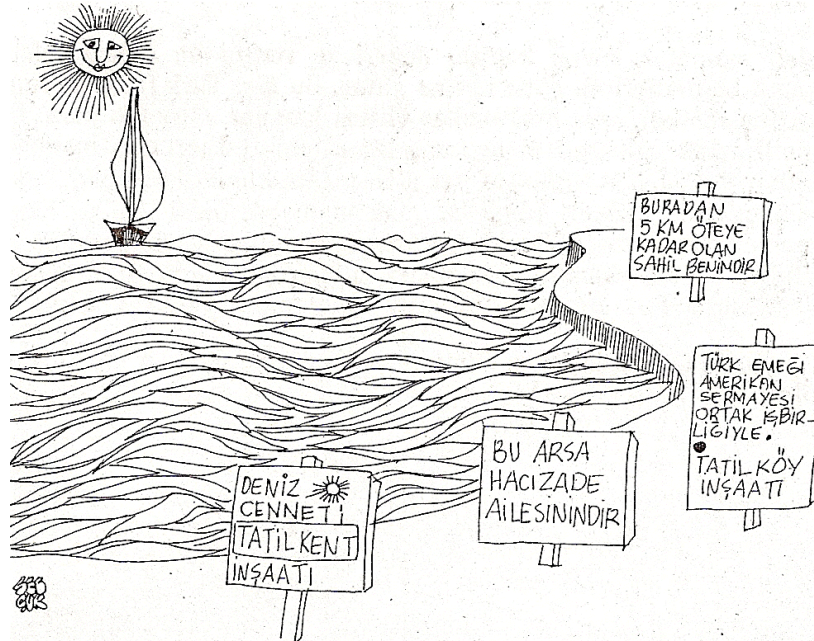 BURADAN
5 KM ÖTEYE
KADAR OLAN
SAHİL BENİMDİR
TÜRK EMEĞİ
AMERİKAN
SERMAYESİ
ORTAK İŞBİR-
LİĞİYLE.
TATİL KÖY
İNŞAATI
BU ARSA
HACIZADE
AİLESINİNDİR
DENİZ
CENNETİ
TATİL KENT
İNŞAATI